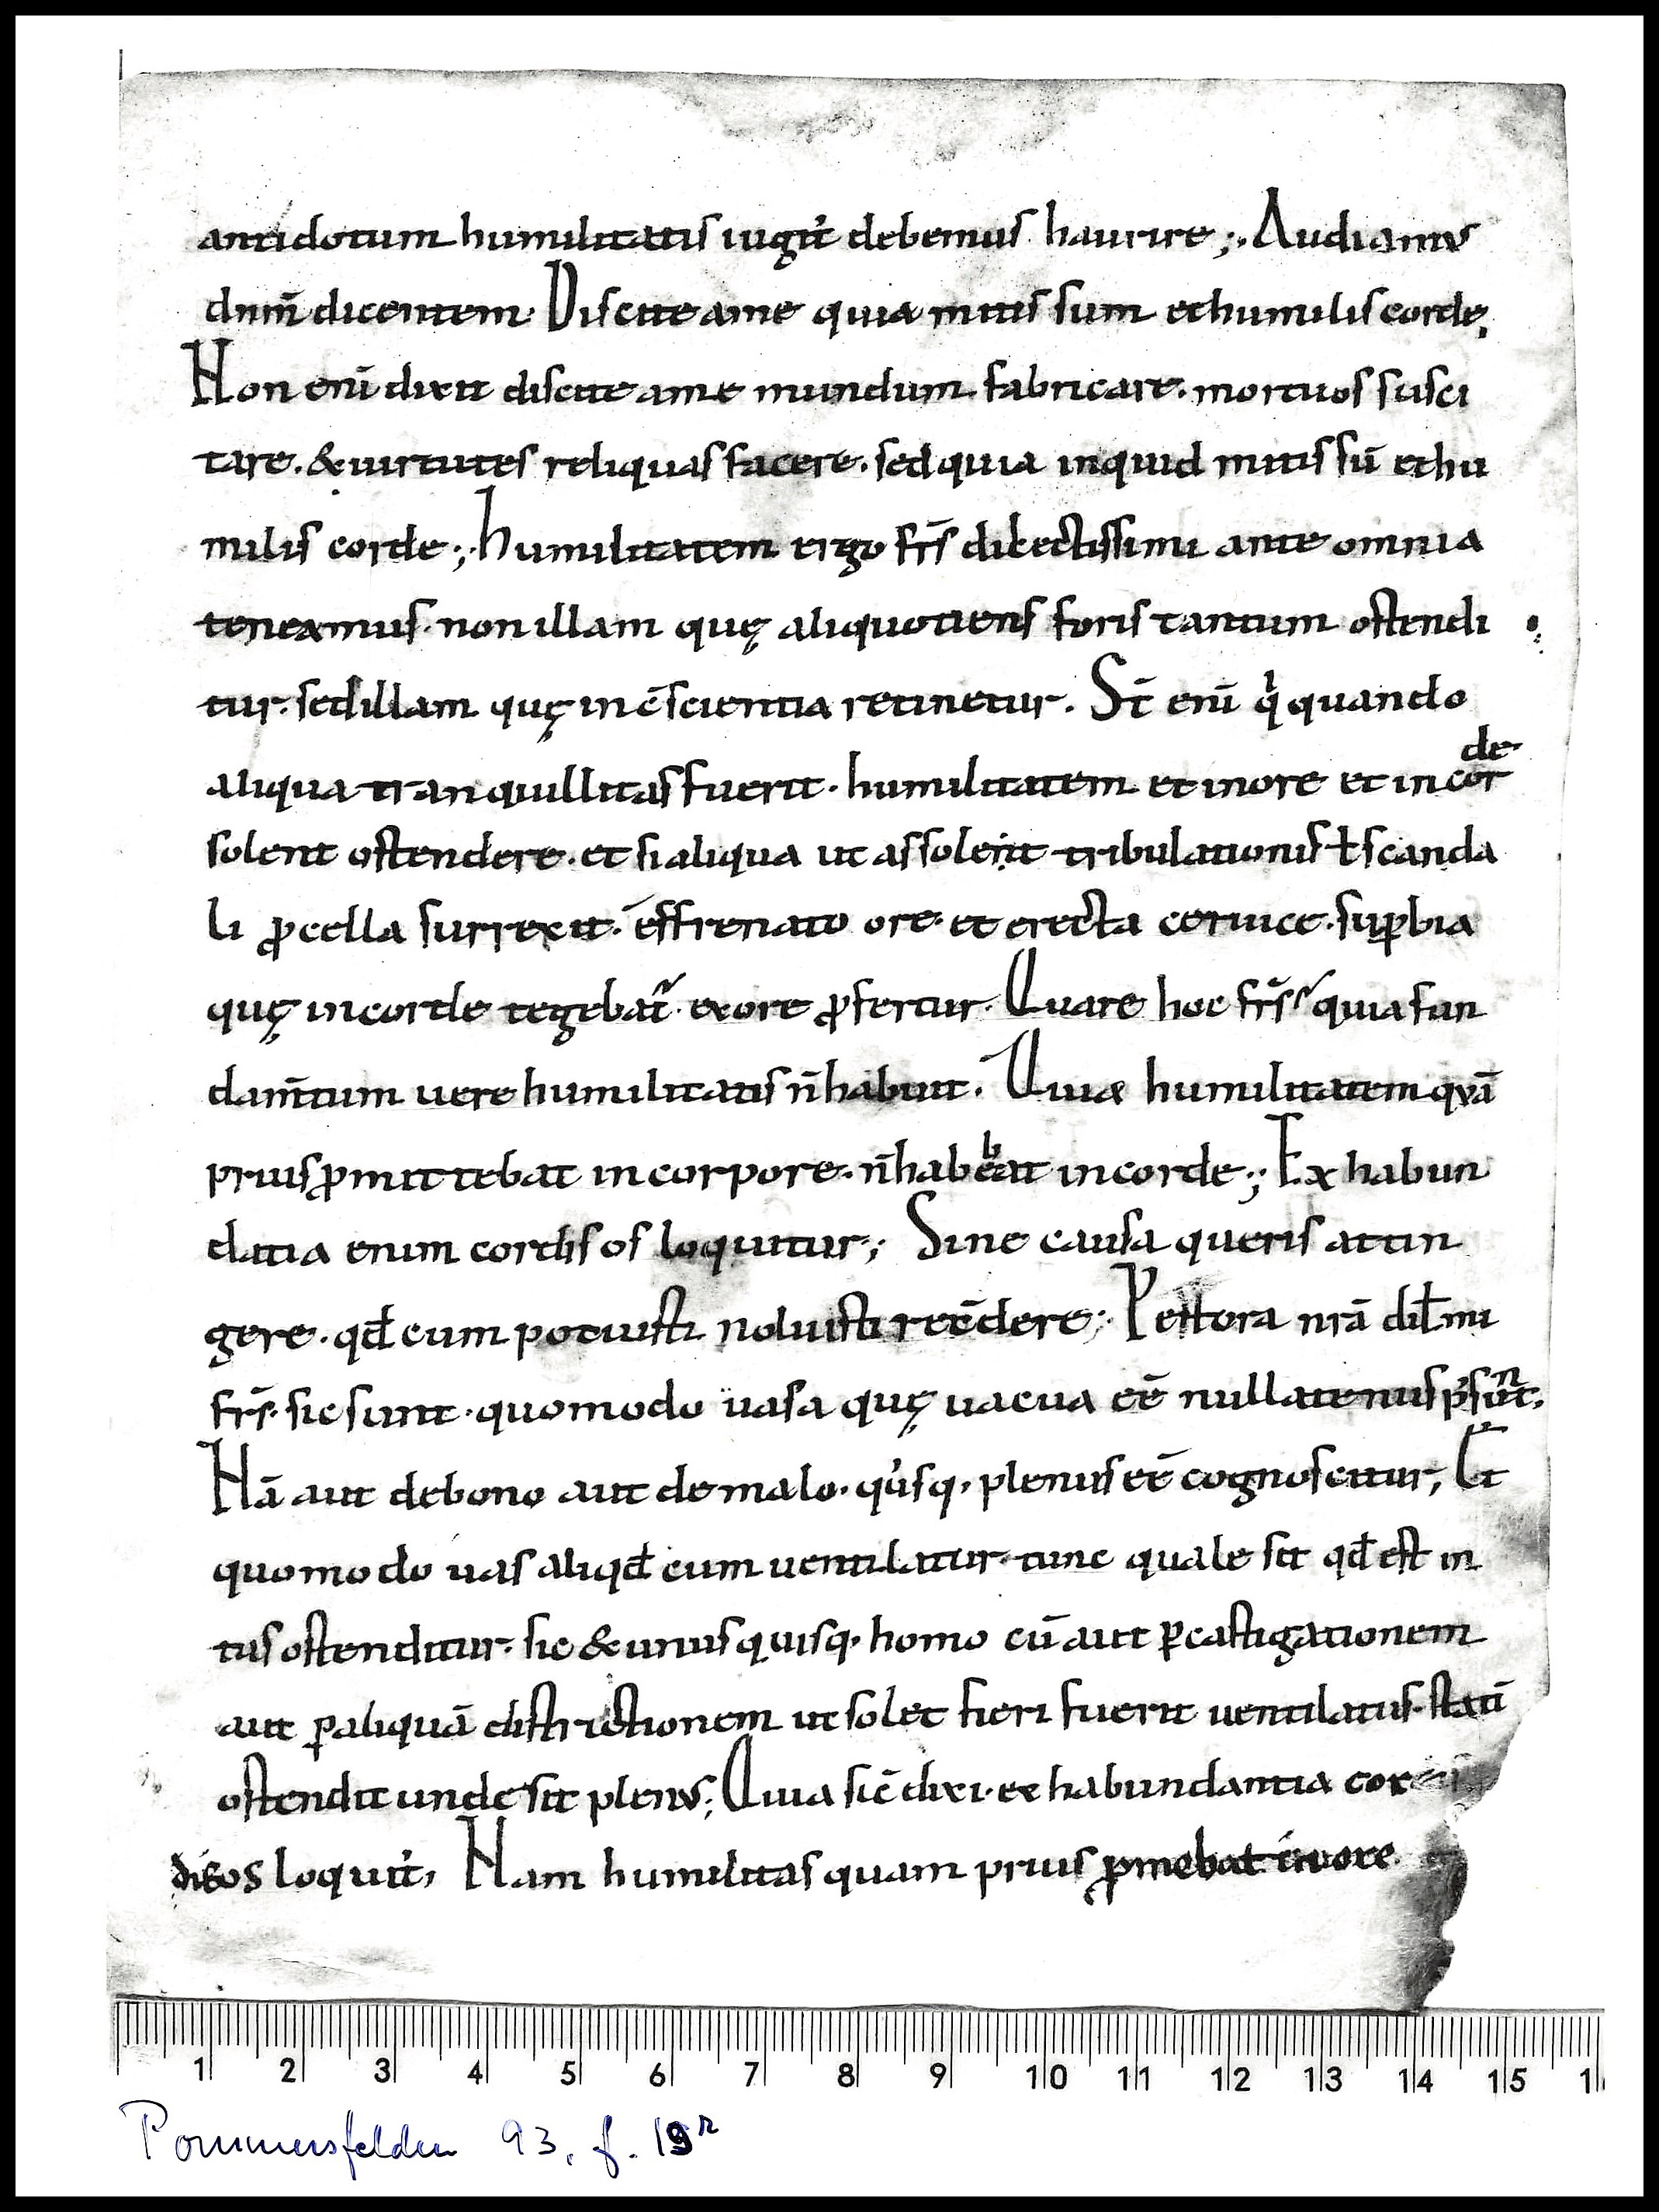 antidotum humilitatis iugit̓ debemus haurire;. Audiamus
dnm̄ dicentem. Discite ame quia mitis sum et humilis corde;
Non enī dixit discite ame mundum fabricare. mortuos susci
tare. & uirtutes reliquas facere. sed quia inquid mitis sū et hu
milis corde;. humilitatem ergo frs̄ dilectissimi ante omnia
teneamus. non illam quę aliquotiens foris tantum ostendi
tur. sed illam quę in c̄scientia retinetur. St̄ enī qͥ quando
de
aliqua tranquillitas fuerit. humilitatem et inore et in cor
solent ostendere. et si aliqua ut assolent tribulationis ł scanda
li ꝓcella surrexit. effrenato ore. et erecta ceruice. suꝑbia
quę incorde tegebat̄. exore ꝓfertur. Quare hoc frs̄ quia fun
dam̄tum uere humilitatis n̄ habuit. Quia humilitatem quā
prius ꝓmittebat in corpore. n̄ habebat incorde;. Ex habun
datia enim cordis os loquitur;. Sine causa queris attin
gere. qđ cum potuisti noluisti recēdere;. Pettora nrā dił mi
frs̄. sic sunt. quomodo uasa quę uacua eē nullatenus p̓sūnt.
Nā aut de bono aut de malo. qͥsq. plenus eē cognoscitur, Et
quomodo uas aliqđ cum uentilatur. tunc quale sit qđ est in
tus ostenditur. sic & unusquisq. homo cū aut ꝑ castigationem
aut ꝑ aliquā districtionem ut solet fieri fuerit uentilatus. statī
ostendit unde sit plenus; Quia sic̄ dixi. ex habundantia cor
dis os loquit̓, Nam humilitas quam prius ꝓmebat in ore.
1 2 3 4 5 6 7 8 9 10 11 12 13 14 15 1
Pommersfelden 93, f. 19r